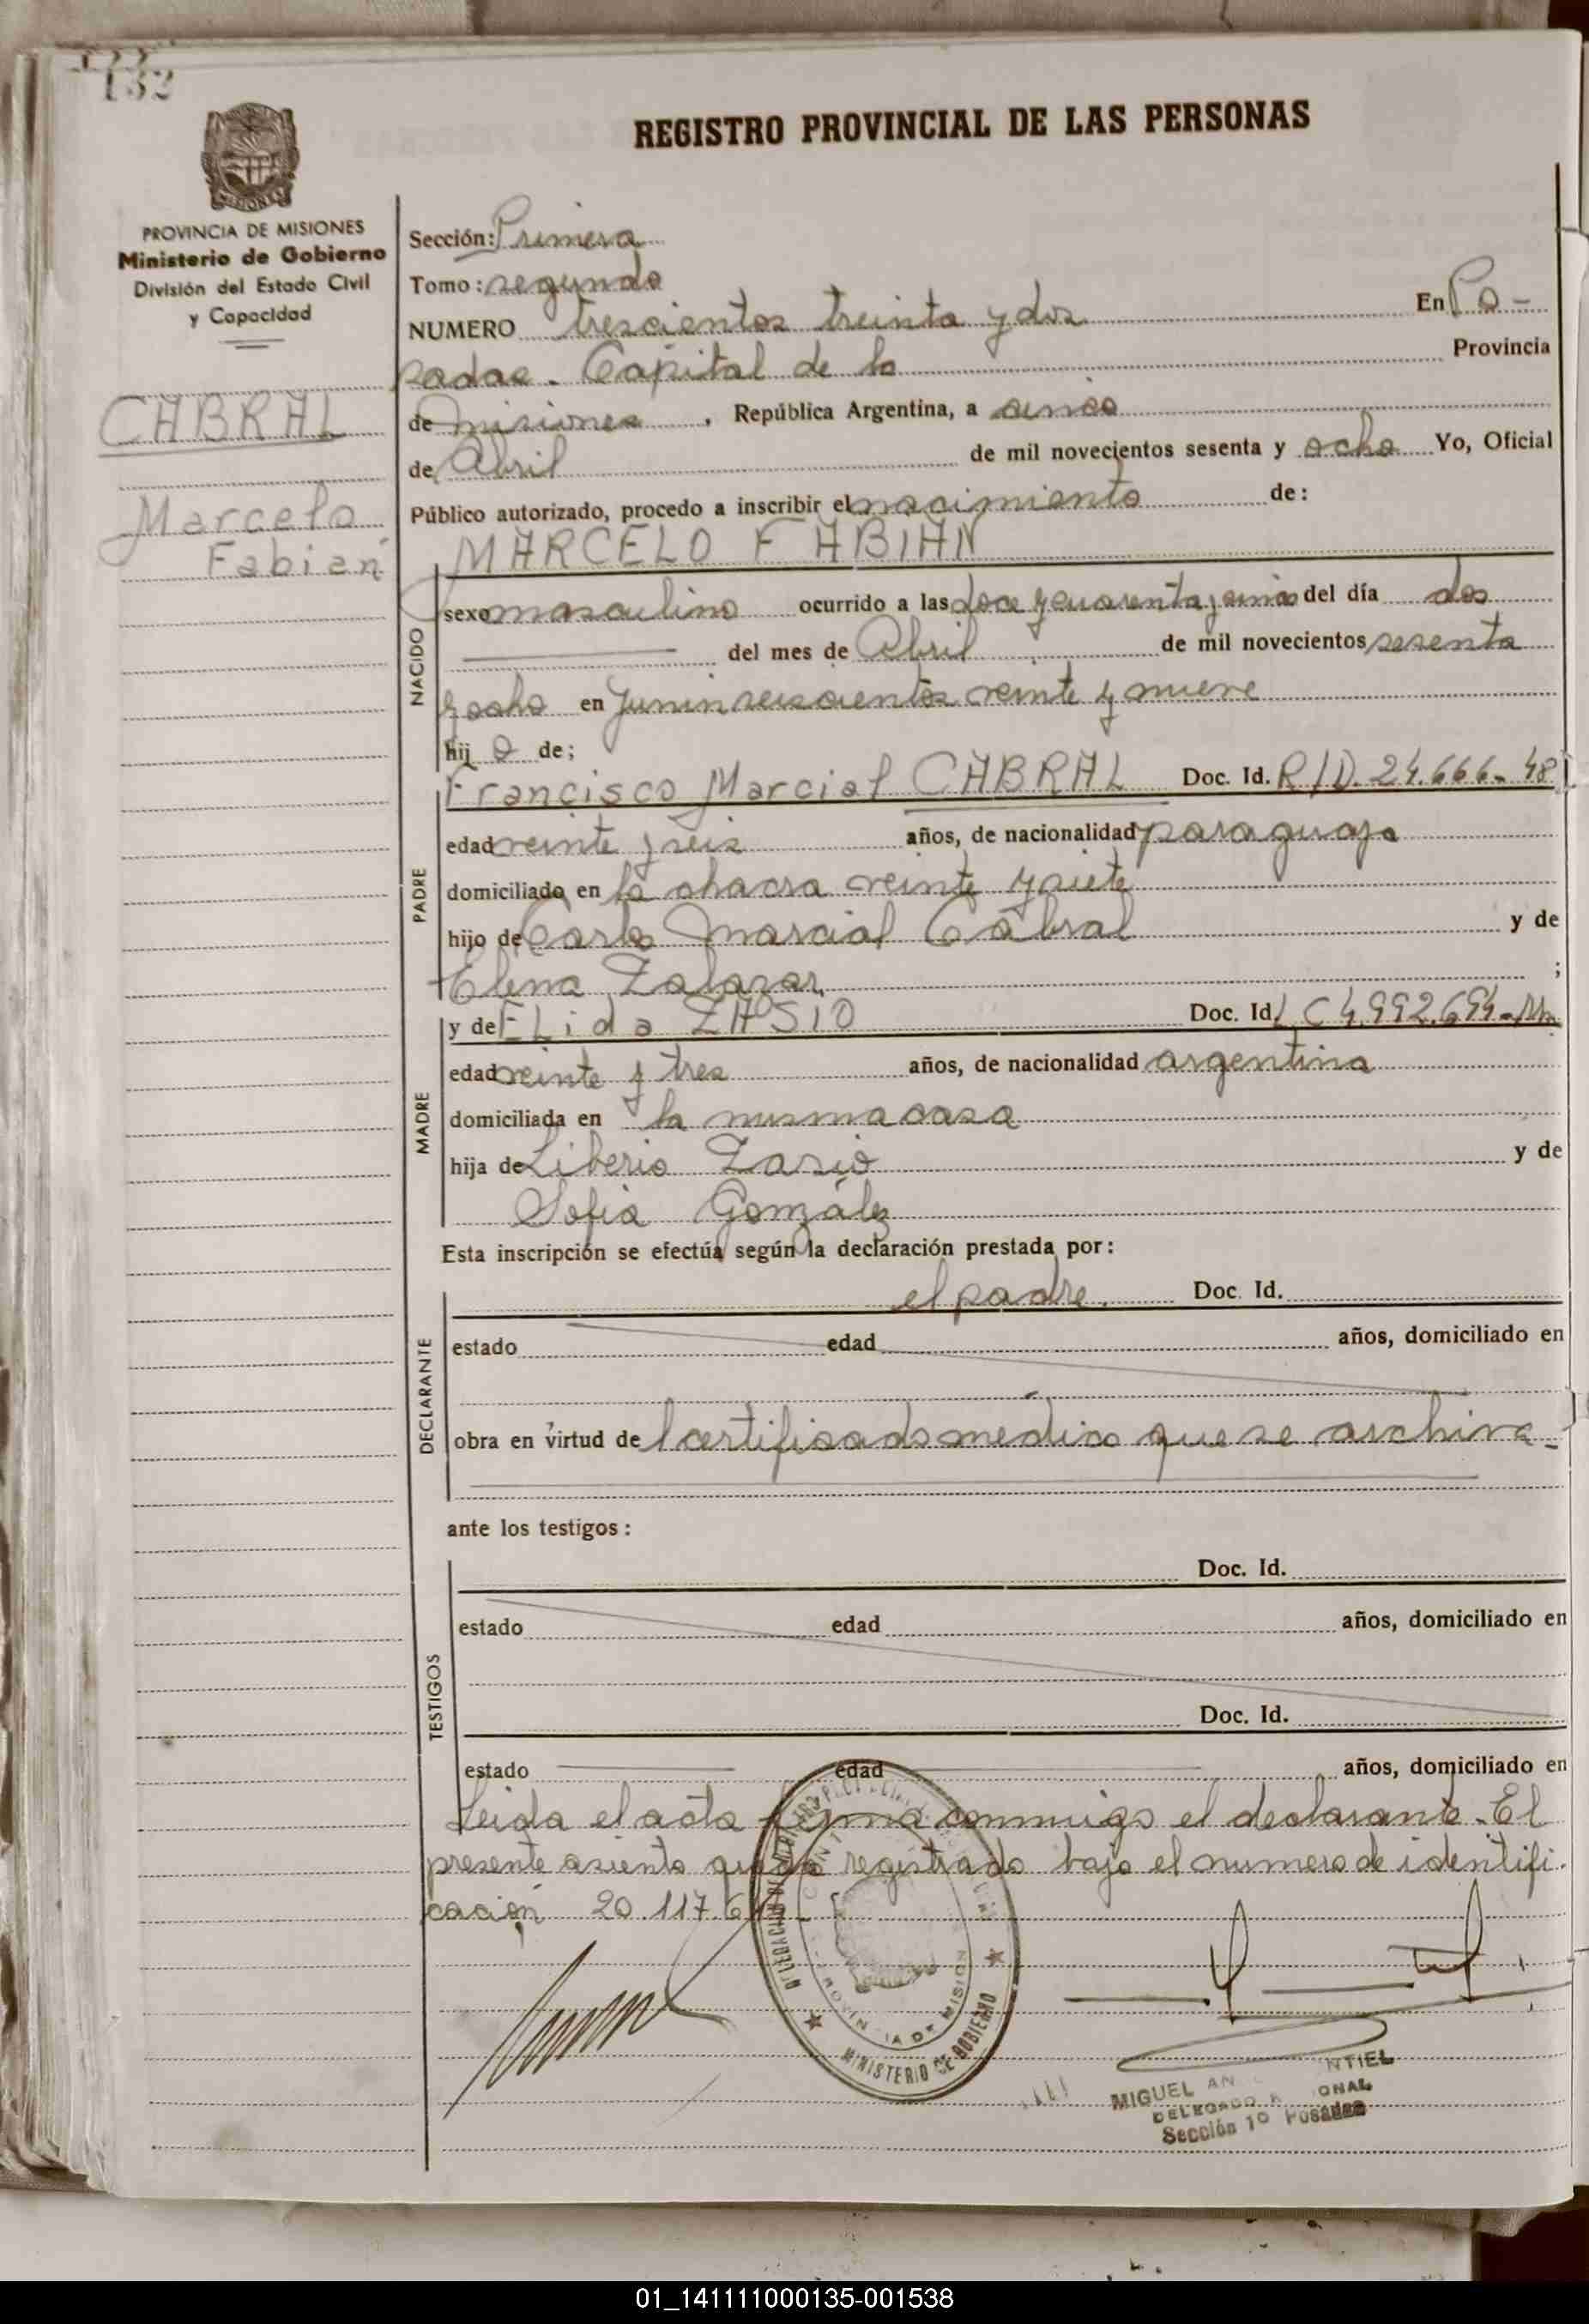 132
REGISTRO PROVINCIAL DE LAS PERSONAS
PROVINCIA DE MISIONES
Ministerio de Gobierno
División del Estado Civil
y Capacidad
CABRAL
Marcelo
Fabián
Sección: Primera
Tomo: segundo
NUMERO trescientos treinta y dos En Po-
sadas. Capital de la Provincia
de Misiones, República Argentina, a cinco
de Abril de mil novecientos sesenta y ocho Yo, Oficial
Público autorizado, procedo a inscribir el nacimiento de:
MARCELO FABIAN
NACIDO
sexo masculino ocurrido a las doce y cuarenta y cinco del día dos
del mes de Abril de mil novecientos sesenta
y ocho en Junin seiscientos veinte y nueve
hij o de;
PADRE
Francisco Marcial CABRAL Doc. Id. R/D. 24.666- 48
edad veinte y seis años, de nacionalidad paraguaya
domiciliado en la chacra veinte y siete
hijo de Carlos Marcial Cabral y de
Elena Zalazar ;
MADRE
y de ELida ZASIO Doc. Id. L C 4.992.694-
edad veinte y tres años, de nacionalidad argentina
domiciliada en la misma casa
hija de Liberio Zasio y de
Sofia González
Esta inscripción se efectúa según la declaración prestada por:
DECLARANTE
el padre. Doc. Id.
estado edad años, domiciliado en
obra en virtud de l certificado médico que se archiva-
ante los testigos:
TESTIGOS
Doc. Id.
estado edad años, domiciliado en
Doc. Id.
estado edad años, domiciliado en
Leida el acta firma conmigo el declarante. El
presente asiento queda registrado bajo el numero de identifi.
cación 20 117
PROVINCIA DE MISIONES
MINISTERIO DE GOBIERNO
MIGUEL
DELEGADO
Sección 1º Posadas
01_141111000135-001538